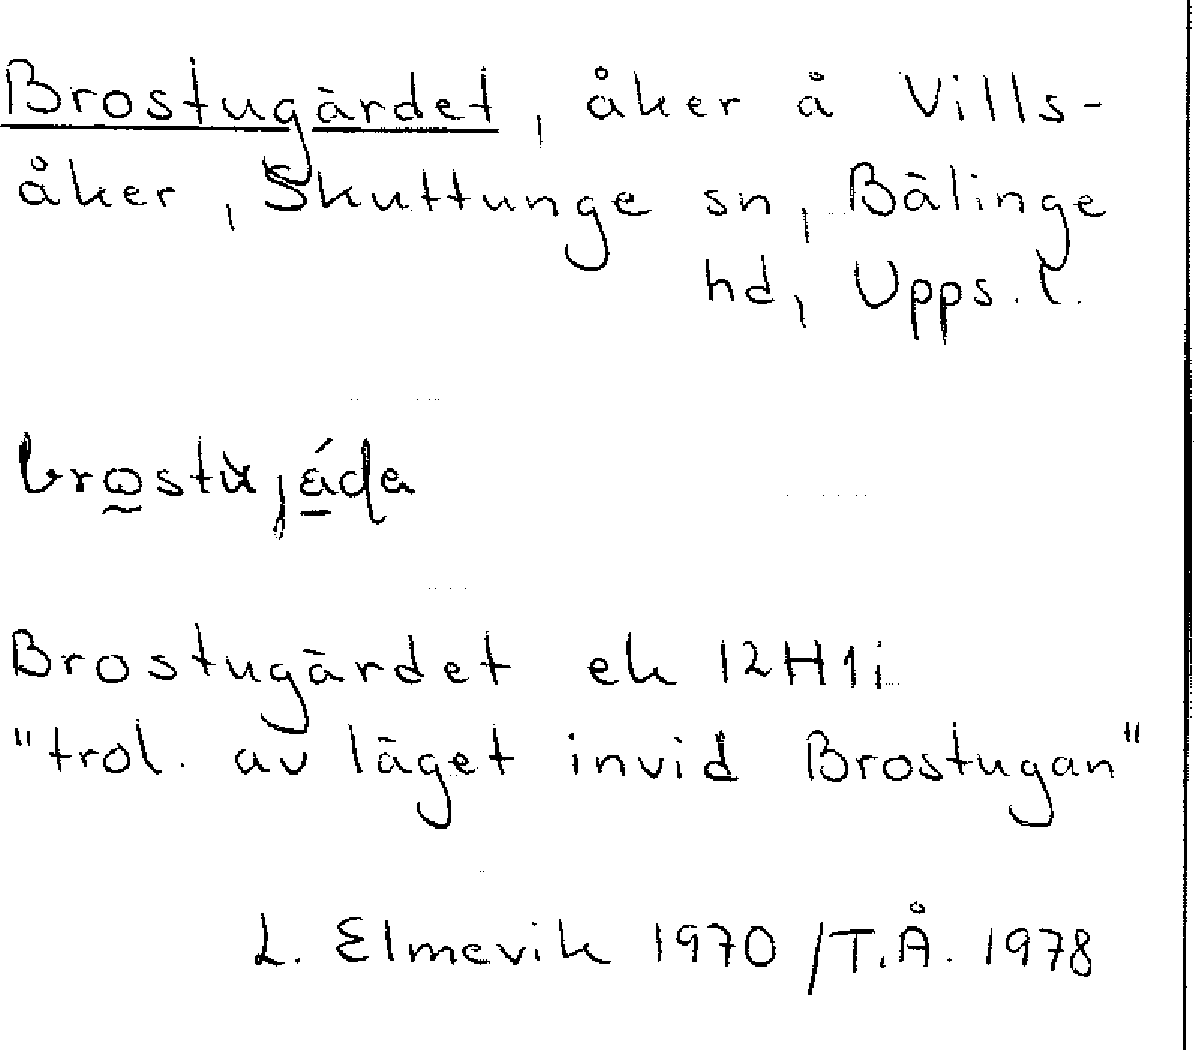 Brostugärdet, åker å Vills-
åker, Skuttunge sn, Bälinge
hd, Upps. l.
Brostugärdet ek 12H1i
"trol. av läget invid Brostugan"
L. Elmevik 1970 /T.Å. 1978